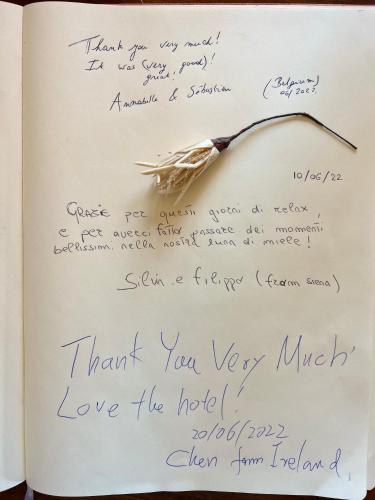 Thank you very much!
It was (very good)!
great!
Annabelle & Sébastien
(Belgium)
06/2022
10/06/22
GRAZIE per questi giorni di relax,
e per averci fatto passare dei momenti
bellissimi nella nostra luna di miele!
Silvia e Filippo (from siena)
Thank You Very Much!
Love the hotel!
20/06/2022
Chen from Ireland